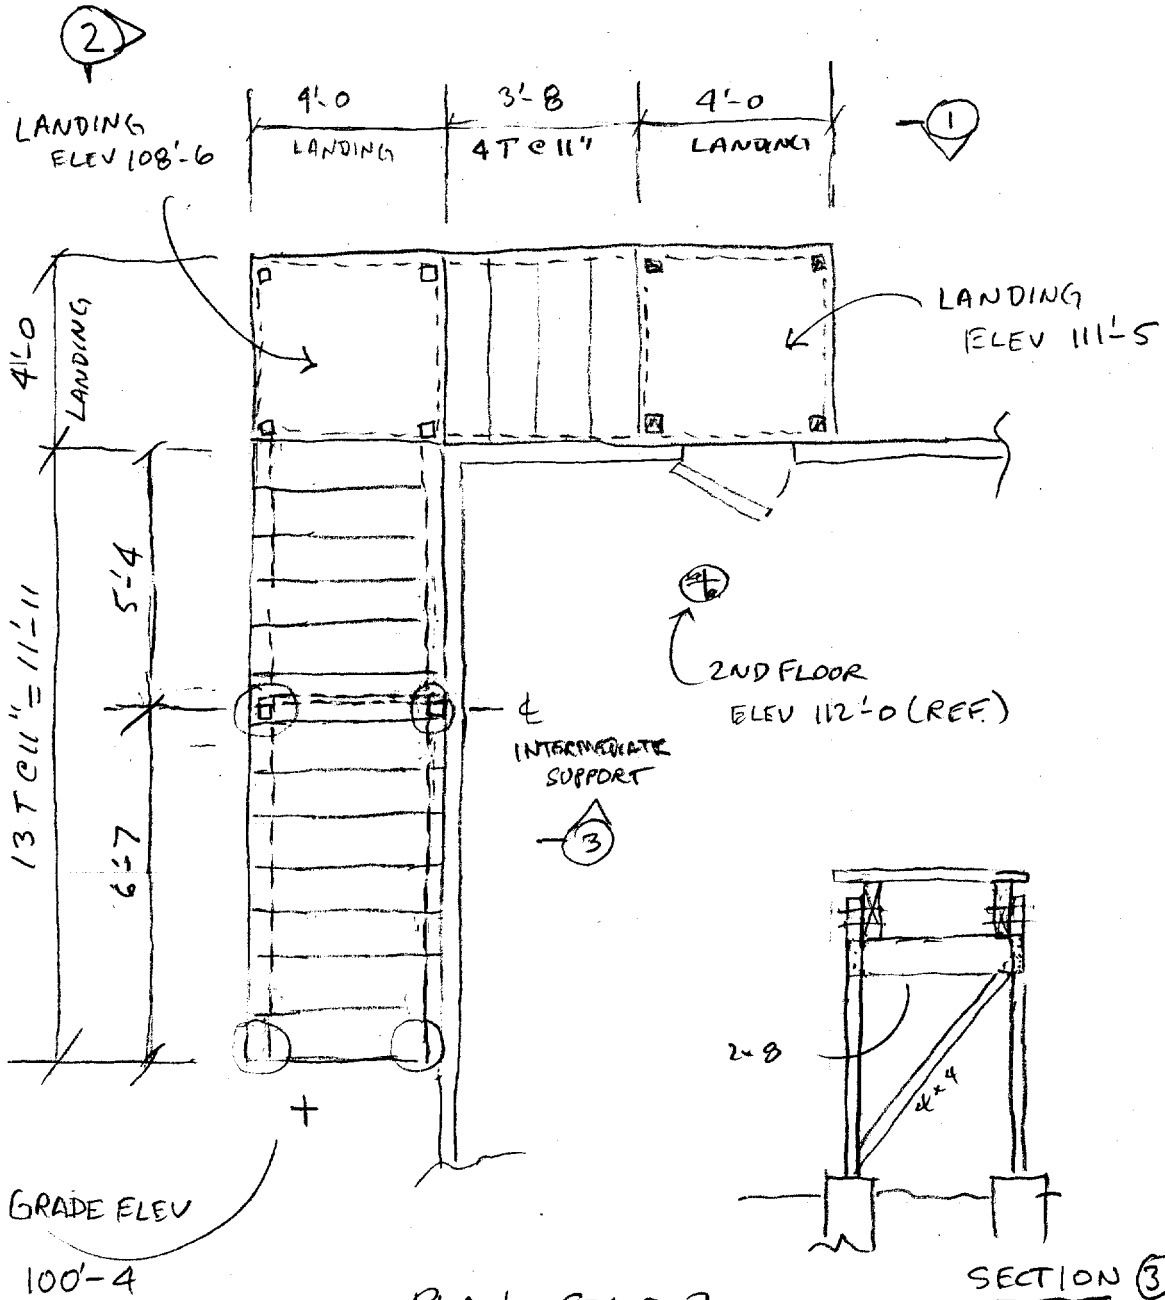 2
4'-0
3'-8
4'-0
LANDING
ELEV 108'-6
LANDING
4T@11"
LANDING
1
4'-0
LANDING
LANDING
ELEV 111'-5
5'-4
13T@11"=11'-11
2ND FLOOR
ELEV 112'-0 (REF.)
℄
INTERMEDIATE
SUPPORT
3
6'-7
2x8
4x4
GRADE ELEV
100'-4
SECTION 3